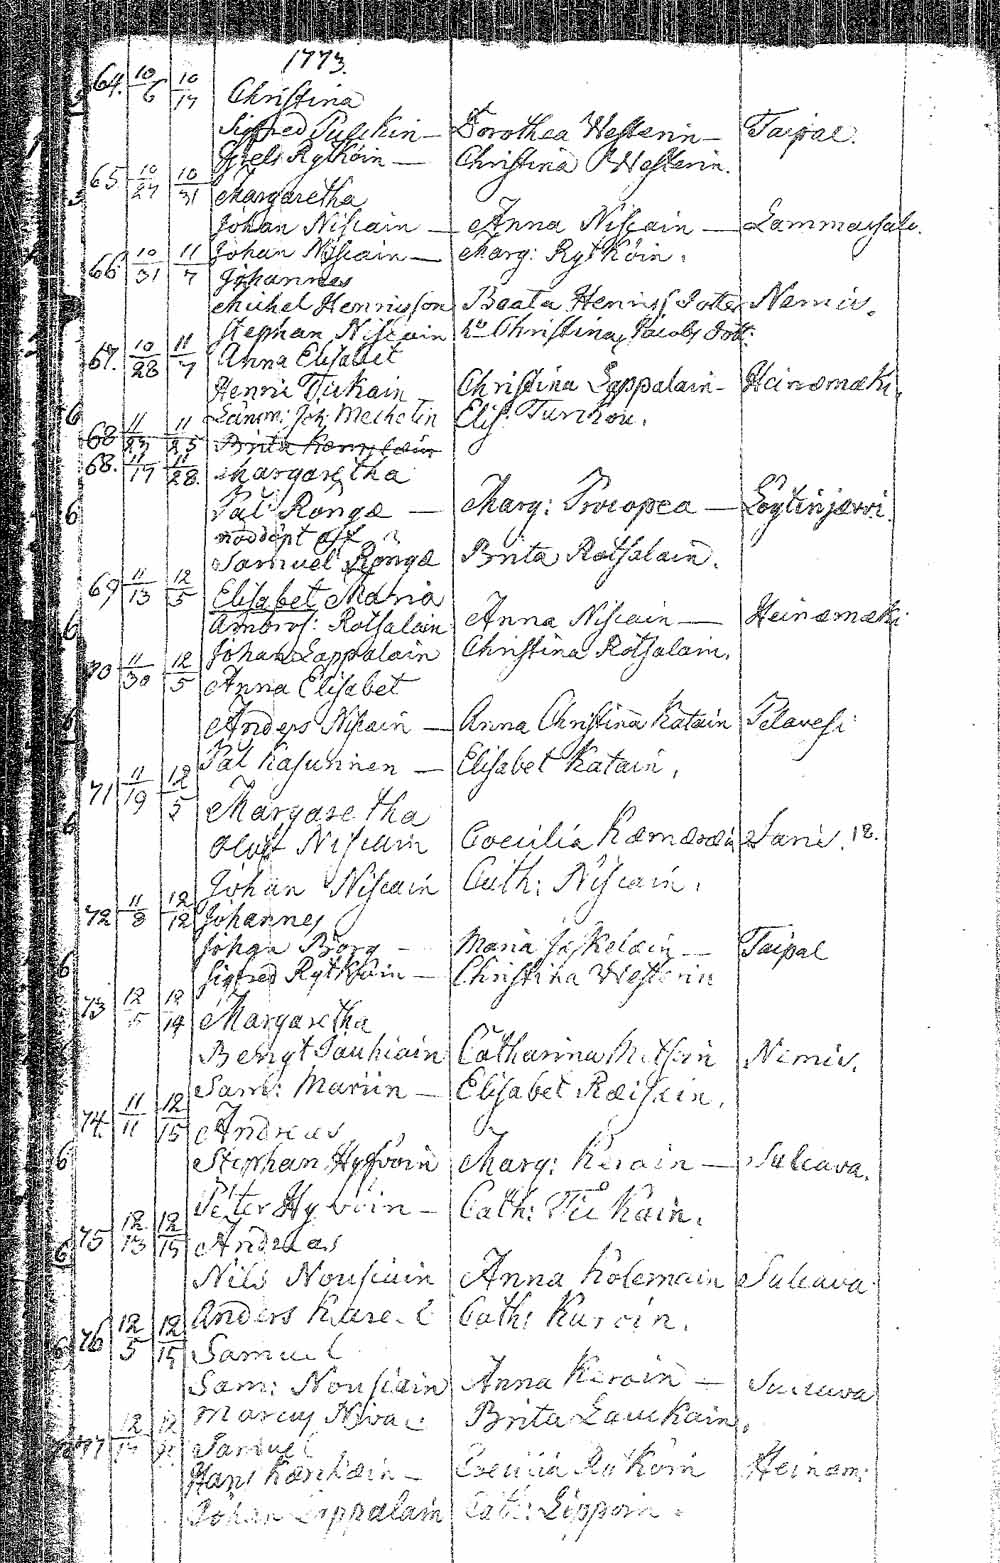 1773.
64. 10/6 10/17 Christina
Sigfred Puckin — Dorothea Westerin — Taipal.
Grels Rytköin — Christina Westerin.
65 10/27 10/31 Margaretha
Johan Niscain — Anna Niscain — Lammassalo.
Johan Niscain — Marg: Rytköin.
66 10/31 11/7 Johannes
Michel Henricsson Beata Henrics Dotter Nemis.
Stephan Niscain Christina Jacobs Dott:
67. 10/28 11/7 Anna Elisabet
Henric Tickain Christina Lappalain — Heinæmæki.
Länsm: Joh: Mechelin Elis: Turchou.
68 11/23 11/25 Brita
68. 11/17 11/28. Margaretha
Pål Rongæ — Marg: Procopea — Löytinjærvi.
nöddöpt af
Samuel Rongæ Brita Rotsalain.
69 11/13 12/5 Elisabet Maria
Ambros: Rotsalain Anna Niscain — Heinæmæki
Johan Lappalain Christina Rotsalain.
70 11/30 12/5 Anna Elisabet
Anders Niscain — Anna Christina Katain Pelavesi
Pål Kasurinen — Elisabet Katain.
71 11/19 12/5 Margaretha
Oluf Niscain Coecilia Kæmæræin Sanis. 12.
Johan Niscain Cath: Niscain.
72 11/8 12/12 Johannes
Johan Biörg — Maria Jæskelæin — Taipal
Sigfred Rytköin — Christina Westerin
73 12/5 12/14 Margaretha
Bengt Jauhiain Catharina Nemis.
Sam: Mariin — Elisabet Ræisæin.
74. 11/11 12/15 Andreas
Stephan Hyvöin Marg: Keroin — Sulcava.
Peter Hyvöin — Cath: Tickain.
75 12/13 12/15 Andreas
Nils Nousiain Anna Kolemain Sulcava
Anders Cath: Kuroin.
76 12/5 12/15 Samuel
Sam: Nousiain Anna Keroin — Sulcava
Marcus Brita Lauckain.
77 Samuel
Hans — Coecilia Rytköin Heinæm:
Johan Lappalain Cath: Lippoin.